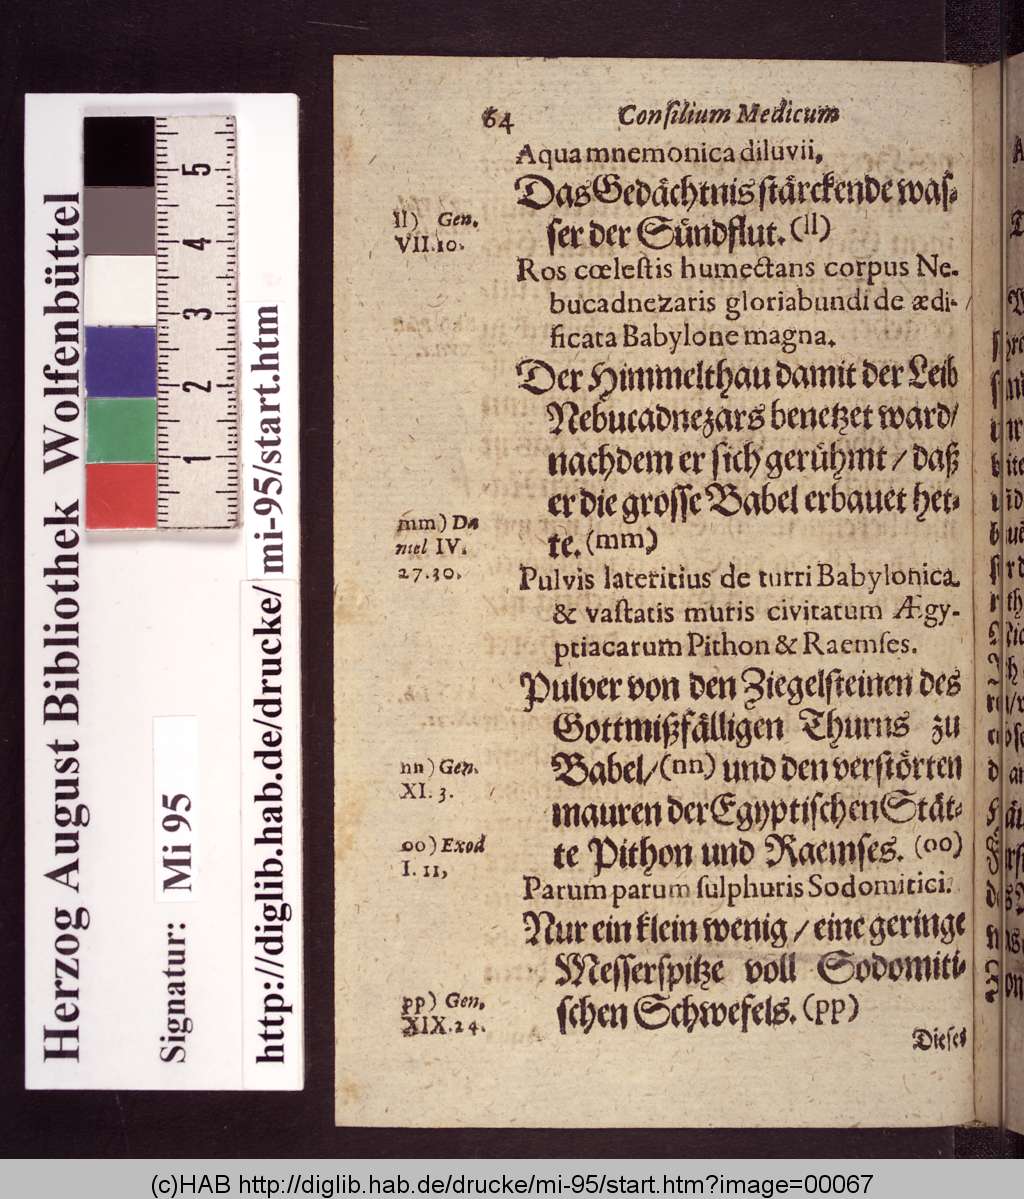 Herzog August Bibliothek Wolfenbüttel
Signatur: Mi 95
http://diglib.hab.de/drucke/mi-95/start.htm
5
4
3
2
1
64 Conſilium Medicum
Aqua mnemonica diluvii,
Das Gedächtnis stärckende waſ⸗
ſer der Sündflut. (ll)
ll) Gen.
VII. 10.
Ros cœleſtis humectans corpus Ne-
bucadnezaris gloriabundi de ædi-
ficata Babylone magna.
Der Himmelthau damit der Leib
Nebucadnezars benetzet ward/
nachdem er ſich gerühmt / daß
er die groſſe Babel erbauet het⸗
te. (mm)
mm) Da
niel IV.
27. 30.
Pulvis lateritius de turri Babylonica
& vaſtatis muris civitatum Ægy-
ptiacarum Pithon & Raemſes.
Pulver von den Ziegelſteinen des
Gottmißfälligen Thurns zu
Babel/ (nn) und den verſtörten
mauren der Egyptiſchen Stät⸗
te Pithon und Raemſes. (oo)
nn) Gen.
XI. 3.
oo) Exod
I. 11,
Parum parum ſulphuris Sodomitici.
Nur ein klein wenig / eine geringe
Meſſerſpitze voll Sodomiti⸗
ſchen Schwefels. (pp)
pp) Gen.
XIX. 24.
Dieſes
(c)HAB http://diglib.hab.de/drucke/mi-95/start.htm?image=00067